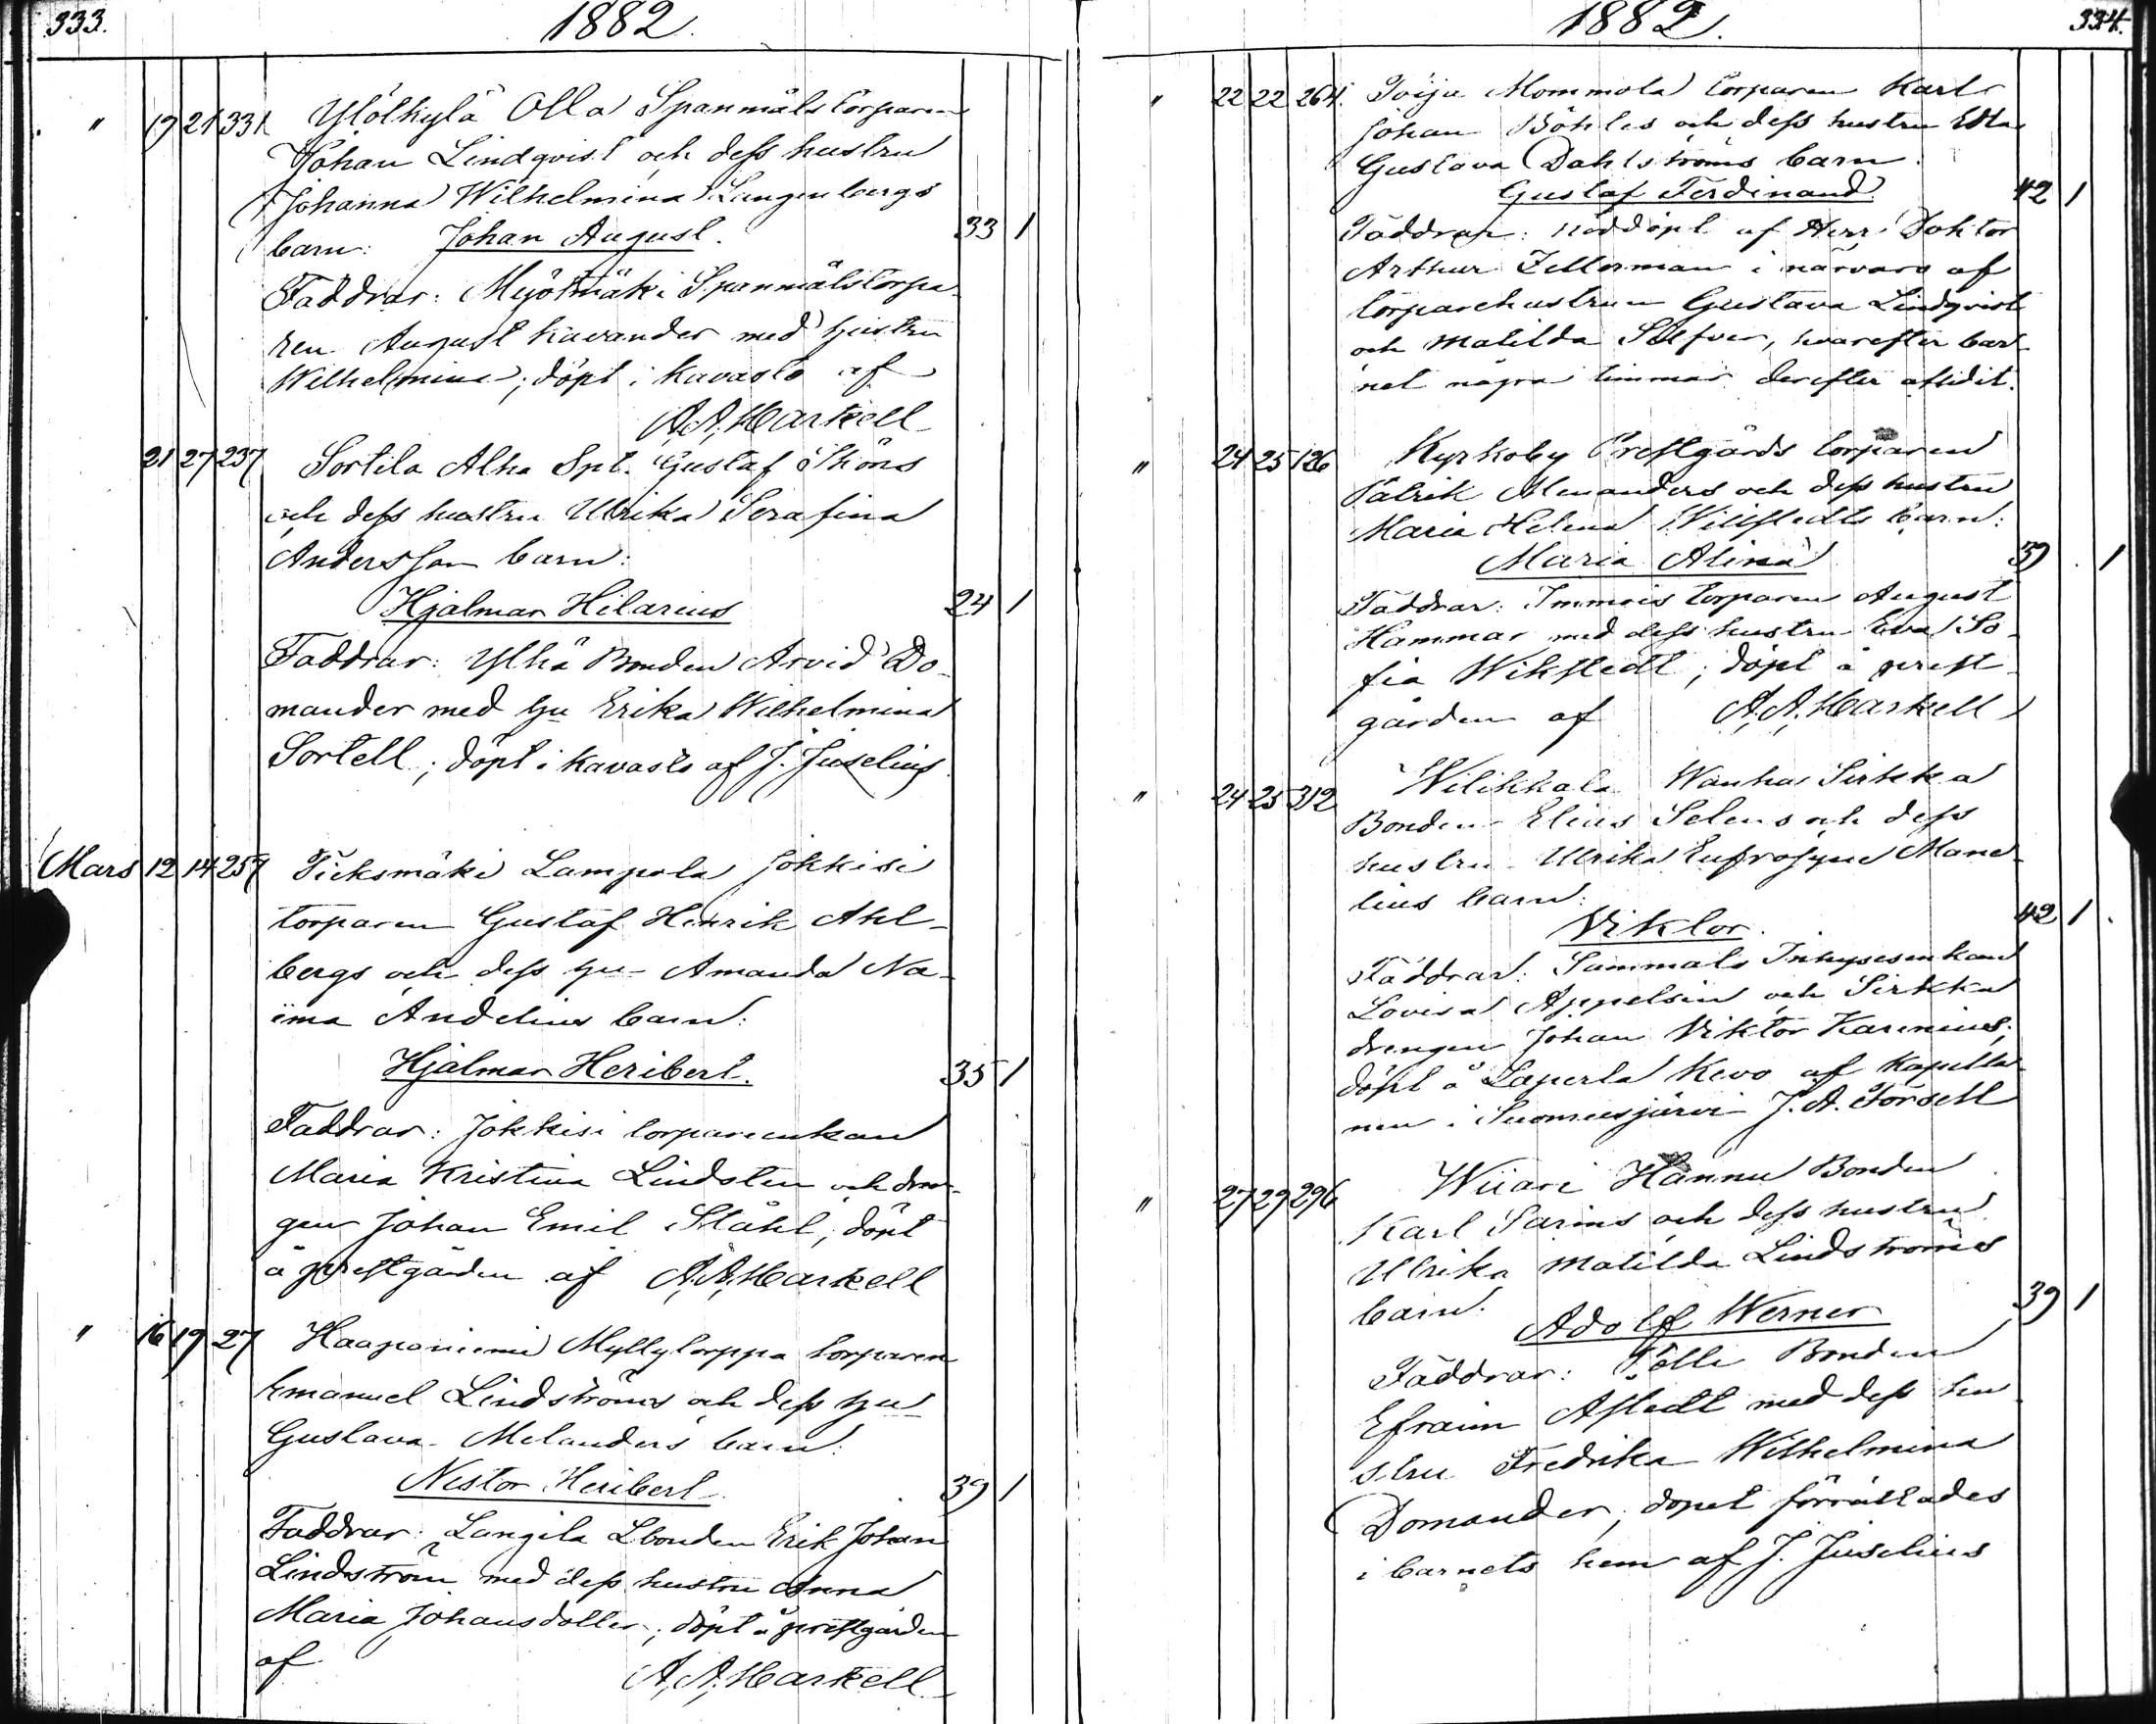 333.
1882.
" 19 21 331 Ylölkylä Olla Spanmåls torparen
Johan Lindqvist och dess hustru
Johanna Wilhelmina Langenbergs
barn: Johan August. 33 1
Faddrar: Myötmäki Spanmålstorpa-
ren August Kavander med hustru
Wilhelmina; döpt i Kavasto af
A. A. Markell
21 27 237 Sortila Alha Spt. Gustaf Sköns
och dess hustru Ulrika Serafina
Andersson barn:
Hjalmar Hilarius 24 1
Faddrar: Ylhä Bonden Arvid Do-
mander med hu Erika Wilhelmina
Sortell; döpt i Kavasto af J. Juselius
Mars 12 14 257 Tieksmäki Lampola Jokkisi
torparen Gustaf Henrik Ahl-
bergs och dess hu- Amanda Na-
ima Andelius barn:
Hjalmar Heribert. 35 1
Faddrar: Jokkisi torpareenkan
Maria Kristina Lindsten och dren-
gen Johan Emil Ståhl; döpt
å prestgården af A. A. Markell
" 16 19 27 Haapaniemi Myllytorppa torparen
Emanuel Lindströms och dess hu-
Gustava Melanders barn:
Nestor Heribert. 39 1
Faddrar: Langila Lbonden Erik Johan
Lindström med dess hustru Anna
Maria Johansdotter; döpt å prestgården
af A. A. Markell
1882.
334.
" 22 22 264. Toija Mommola torparen Karl
Johan Böhles och dess hustru Edla
Gustava Dahlströms barn.
Gustaf Ferdinand 42 1
Faddrar: nöddöpt af Herr Doktor
Arthur Zellerman i närvaro af
torparehustrun Gustava Lindqvist
och Matilda Silfver, hvarefter bar-
net några timmar derefter aflidit.
" 24 25 126 Kyrkoby Prestgårds torparen
Patrik Alenanders och dess hustru
Maria Helena Wikstedts barn:
Maria Alina 39 1
Faddrar: Immois torparen August
Hammar med dess hustru Eva So-
fia Wikstedt; döpt å prest-
gården af A. A. Markell
" 24 25 312 Wilikkala Wanha Sirkka
Bonden Elias Selens och dess
hustru Ulrika Eufrosyne Mane-
lius barn:
Viktor. 42 1
Faddrar: Sammalo Inhysesenkan
Lovisa Appelsin och Sirkka
drengen Johan Viktor Karenius;
döpt å Laperla Kevo af Kapella-
nen i Suomusjärvi J. A. Forsell
" 27 29 296 Wiiari Hannu Bonden
Karl Sarins och dess hustru
Ulrika Matilda Lindströms
barn. Adolf Werner 39 1
Faddrar: Pelli Bonden
Efraim Astedt med dess hu-
stru Fredrika Wilhelmina
Domander; dopet förrättades
i barnets hem af J. Juselius